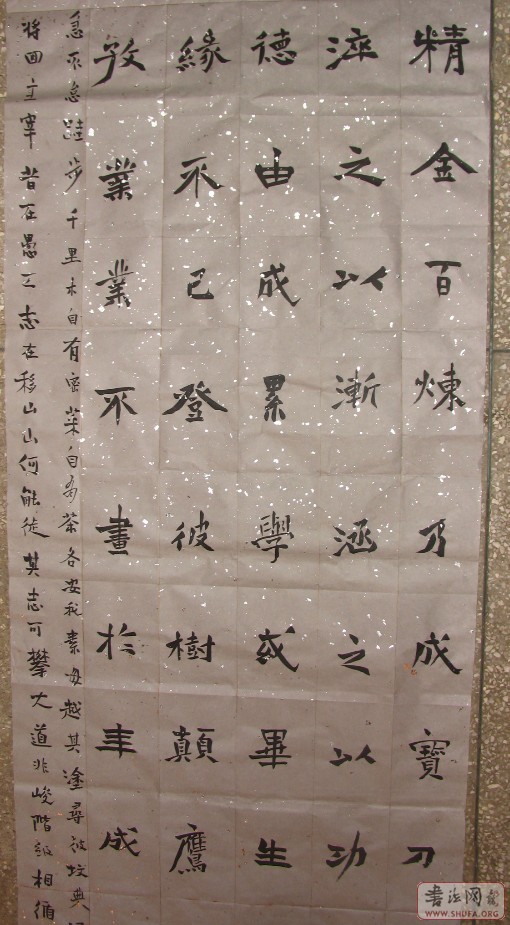 精金百煉乃成寶刀
淬之以漸涵之以功
德由成累學或畢生
緣不已登彼樹顛鷹
孜業業不畫於年成
急不怠跬步千里木自有蜜菜自為茶各安我素毋越其塗尋彼坟典
將回主宰昔在愚工志在移山山何能徙其志可攀大道非峻階級相循
書法网
WWW.SHUFA.ORG